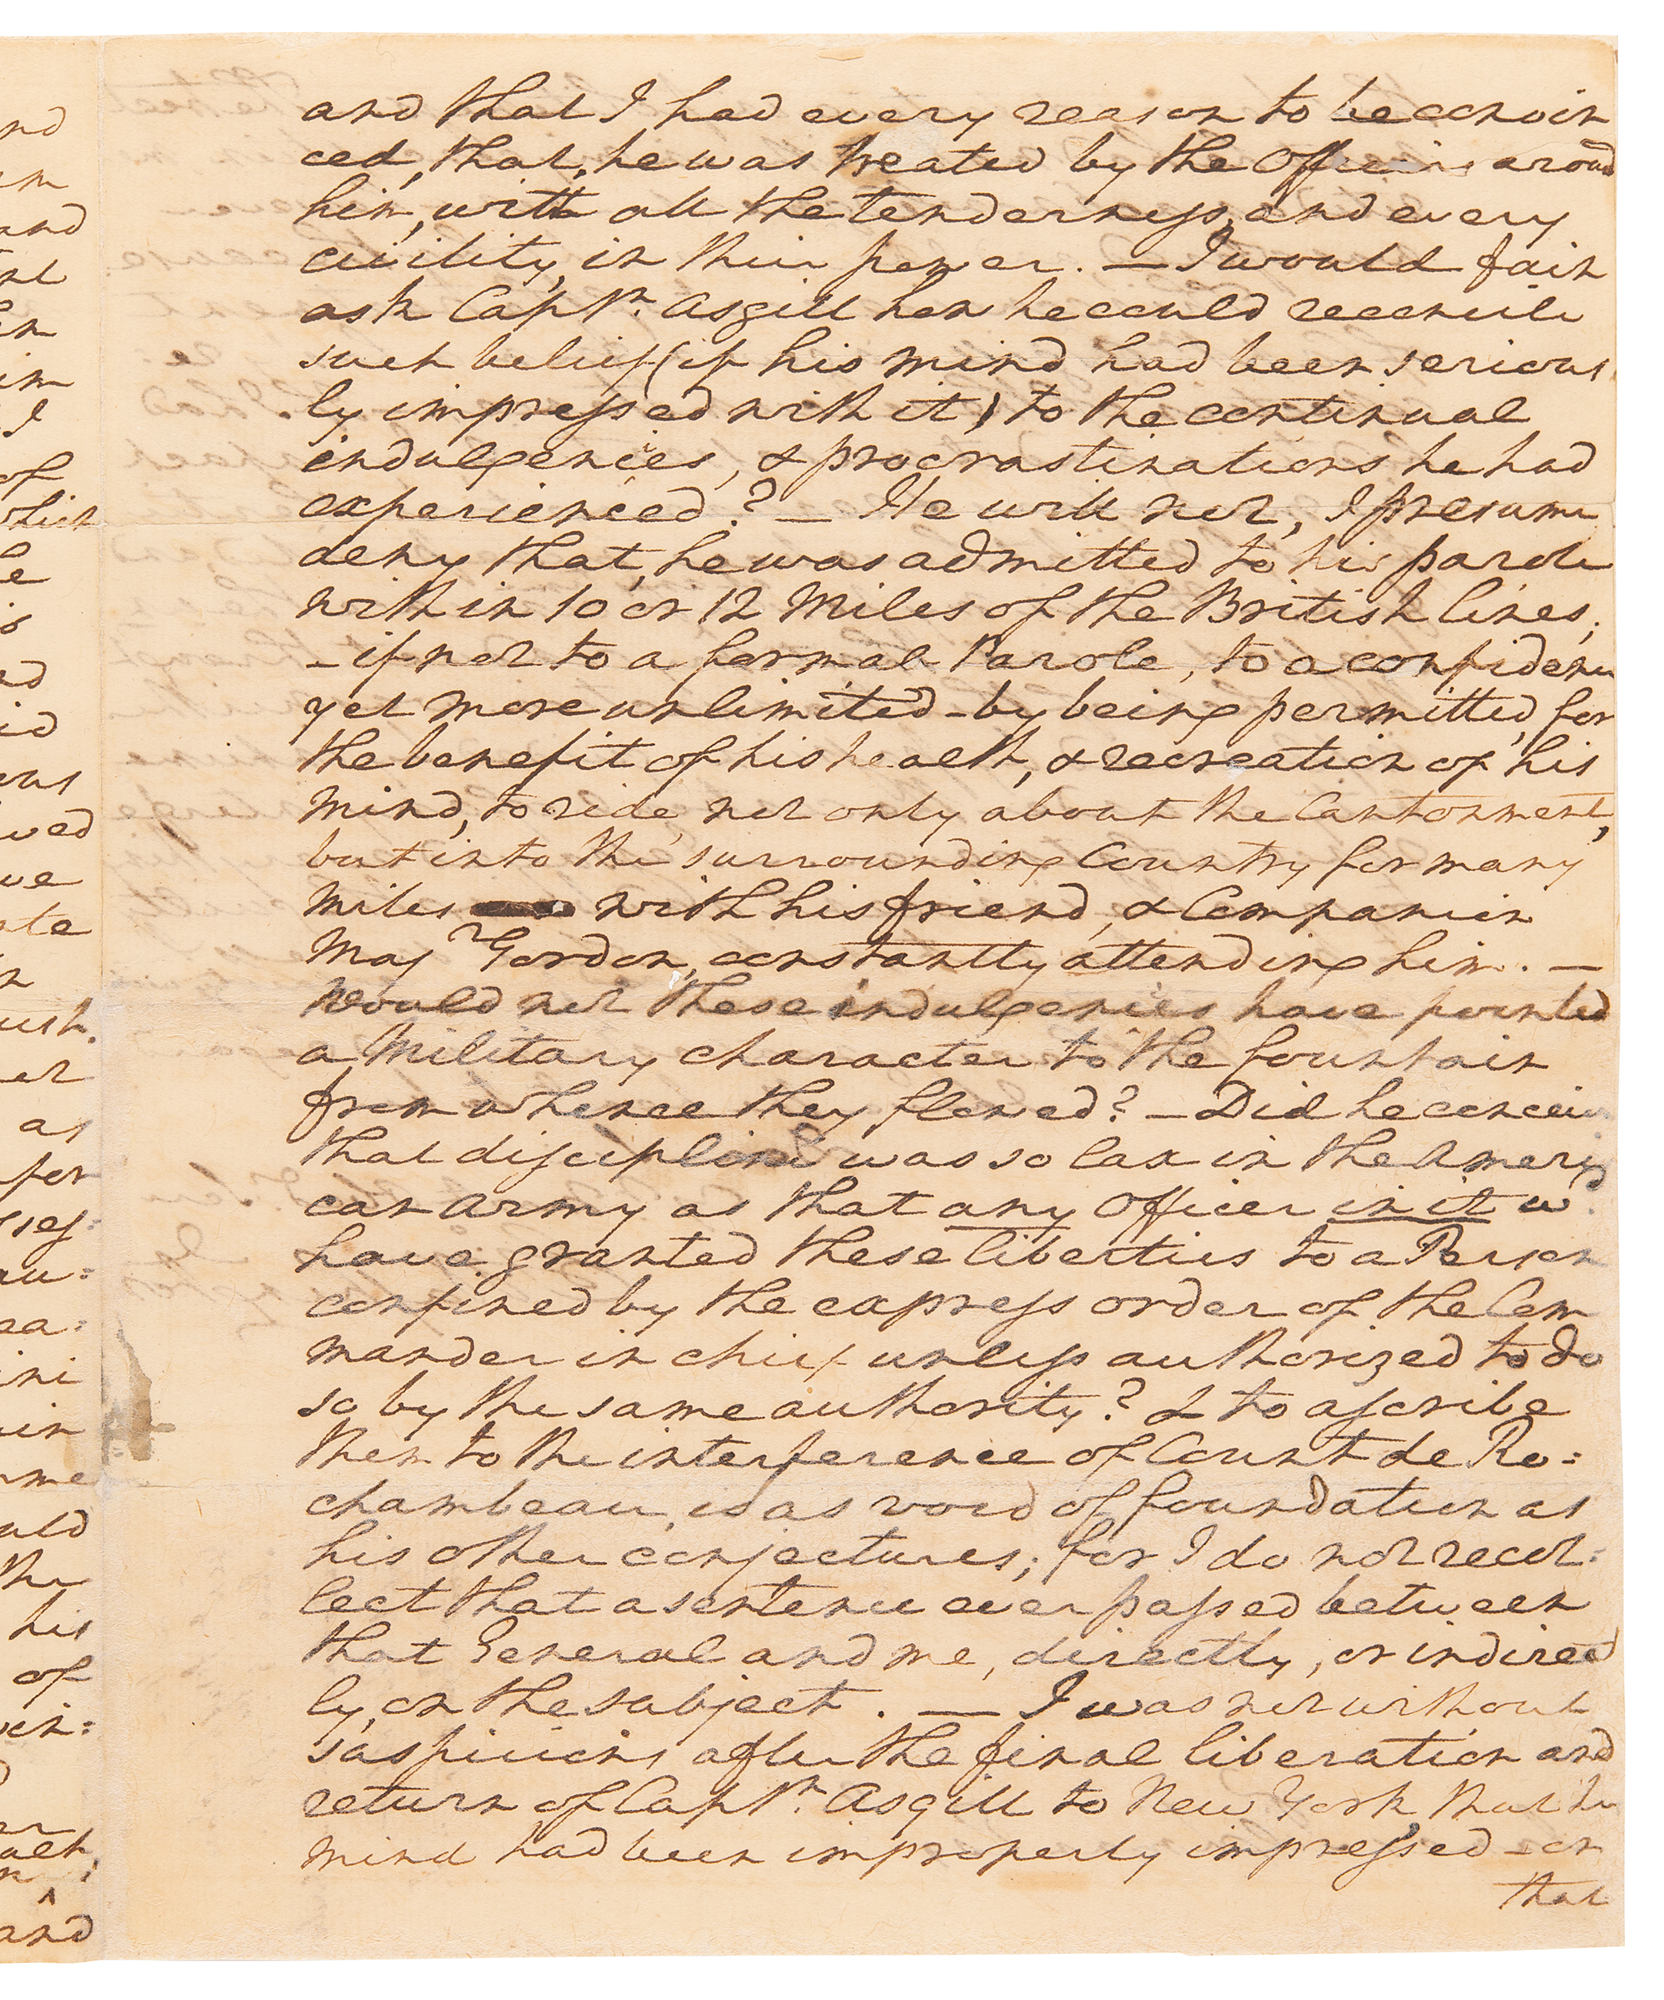 and that I had every reason to be convin
ced, that, he was treated by the Officers around
him, with all the tenderness, and every
civility, in their power. — I would fain
ask Captn. Asgill how he could reconcile
such belief (if his mind had been serious
ly impressed with it) to the continual
indulgencies, & procrastinations he had
experienced? — He will not, I presume
deny that, he was admitted to his parole
within 10 or 12 Miles of the British lines;
- if not to a formal Parole, to a confidence
yet more unlimited - by being permitted, for
the benefit of his health, & recreation of his
mind, to ride, not only about the Cantonment,
but into the surrounding Country for many
Miles with his friend, & Companion
Majr Gordon, constantly attending him. —
Would not these indulgencies have pointed
a Military character to the fountain
from whence they flowed? — Did he conceive
that discipline was so lax in the Ameri
can Army as that any Officer in it wd.
have granted these liberties to a Person
confined by the express order of the Com
mander in chief unless authorized to do
so by the same authority? & to ascribe
them to the interference of Count de Ro=
chambeau, is as void of foundation as
his other conjectures; for I do not recol=
lect that a sentence ever passed between
that General and me, directly, or indirect
ly, on the subject. — I was not without
suspicions after the final liberation and
return of Captn. Asgill to New York, that his
mind had been improperly impressed - or
that
nd
and
I
of
which
he
is
ed
ved
ve
ate
as
for
ini
ould
the
his
of
and